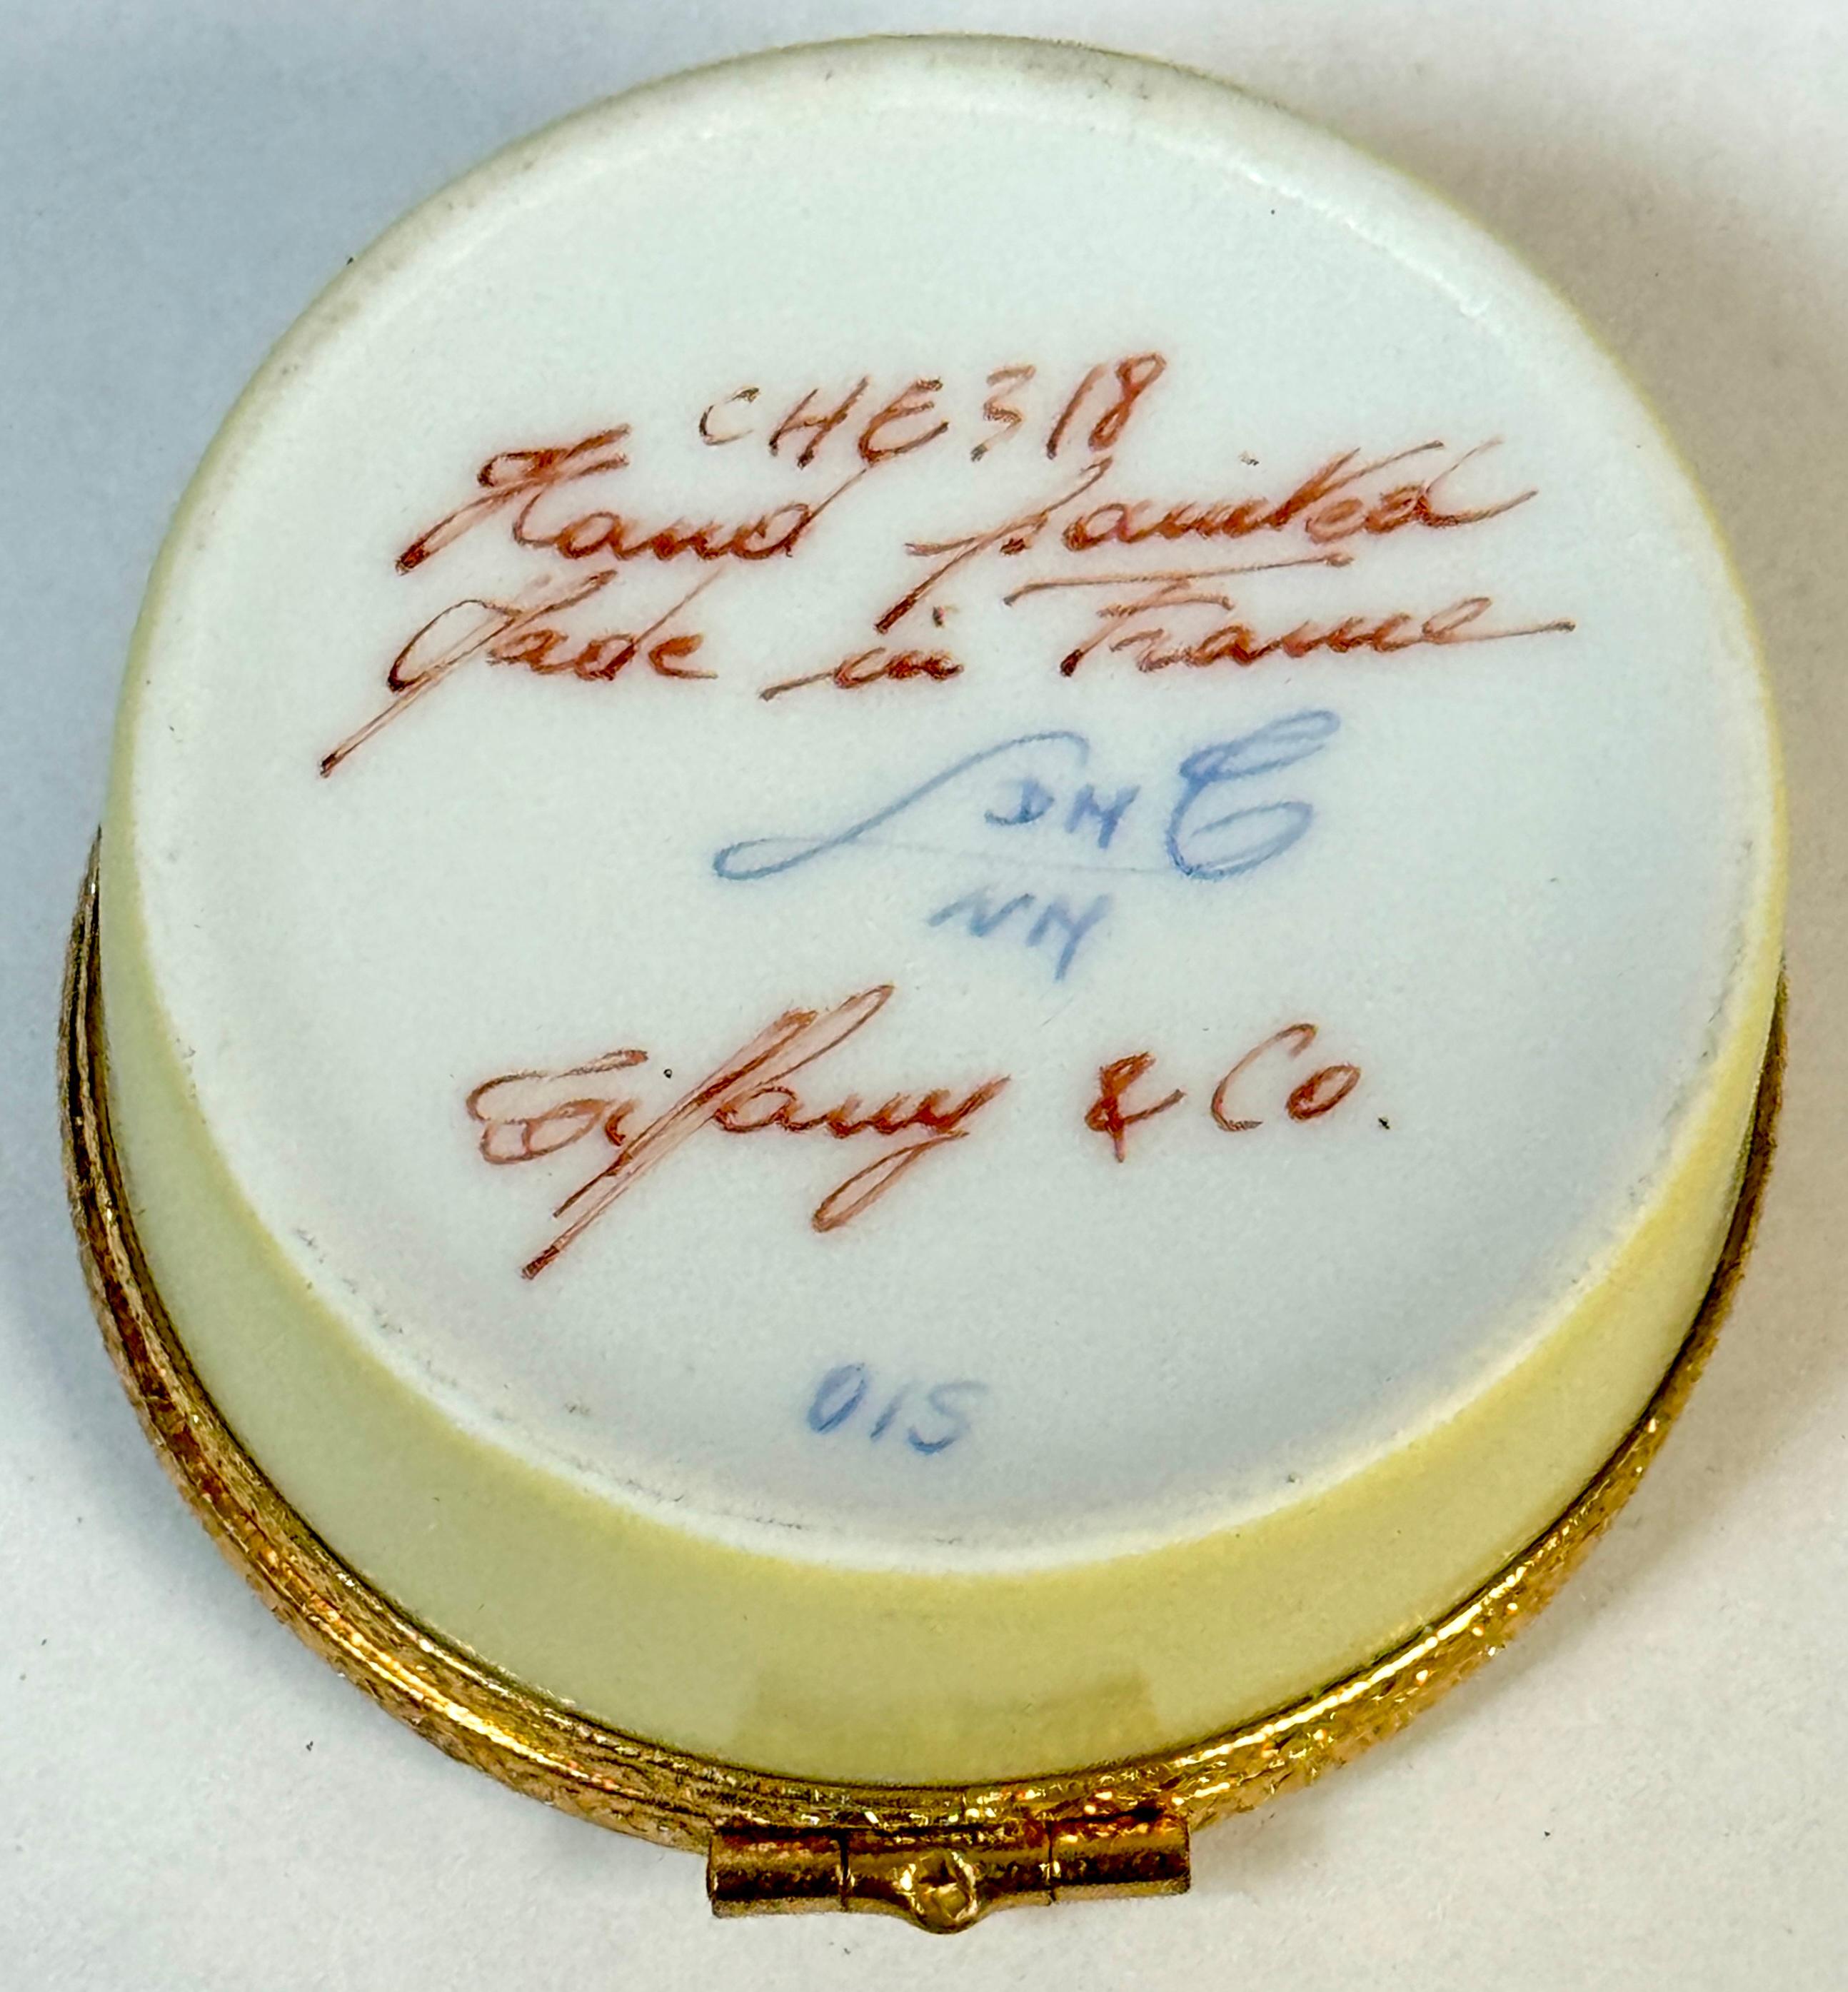 CHE 318
Hand painted
Made in France
DM
NM
Tiffany & Co.
015